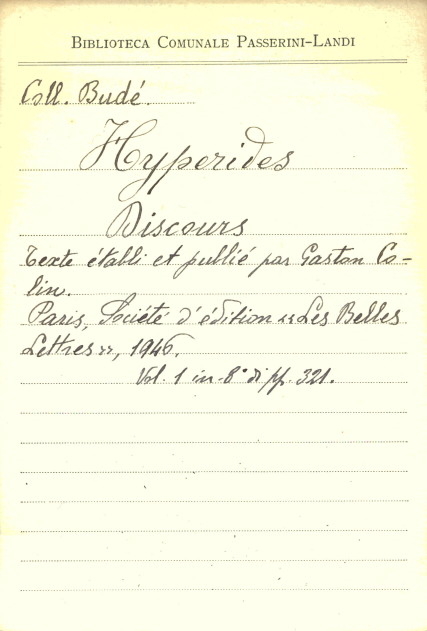 BIBLIOTECA COMUNALE PASSERINI-LANDI
Coll. Budé.
Hyperides
Discours
Texte établi et publié par Gaston Co-
lin.
Paris, Société d'édition «Les Belles
Lettres», 1946.
Vol. 1 in-8° di pp. 321.